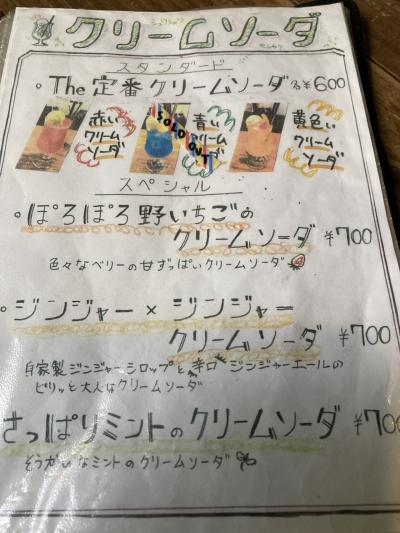 クリームソーダ
スタンダード
。The 定番クリームソーダ 各¥600
赤いクリームソーダ
青いクリームソーダ
SOLD OUT
黄色いクリームソーダ
スペシャル
。ぽろぽろ野いちごの
クリームソーダ ¥700
色々なベリーの甘ずっぱいクリームソーダ
。ジンジャー×ジンジャー
クリームソーダ ¥700
自家製ジンジャーシロップと辛口ジンジャーエールの
ピリッと大人なクリームソーダ
さっぱりミントのクリームソーダ ¥70
そうかいなミントのクリームソーダ